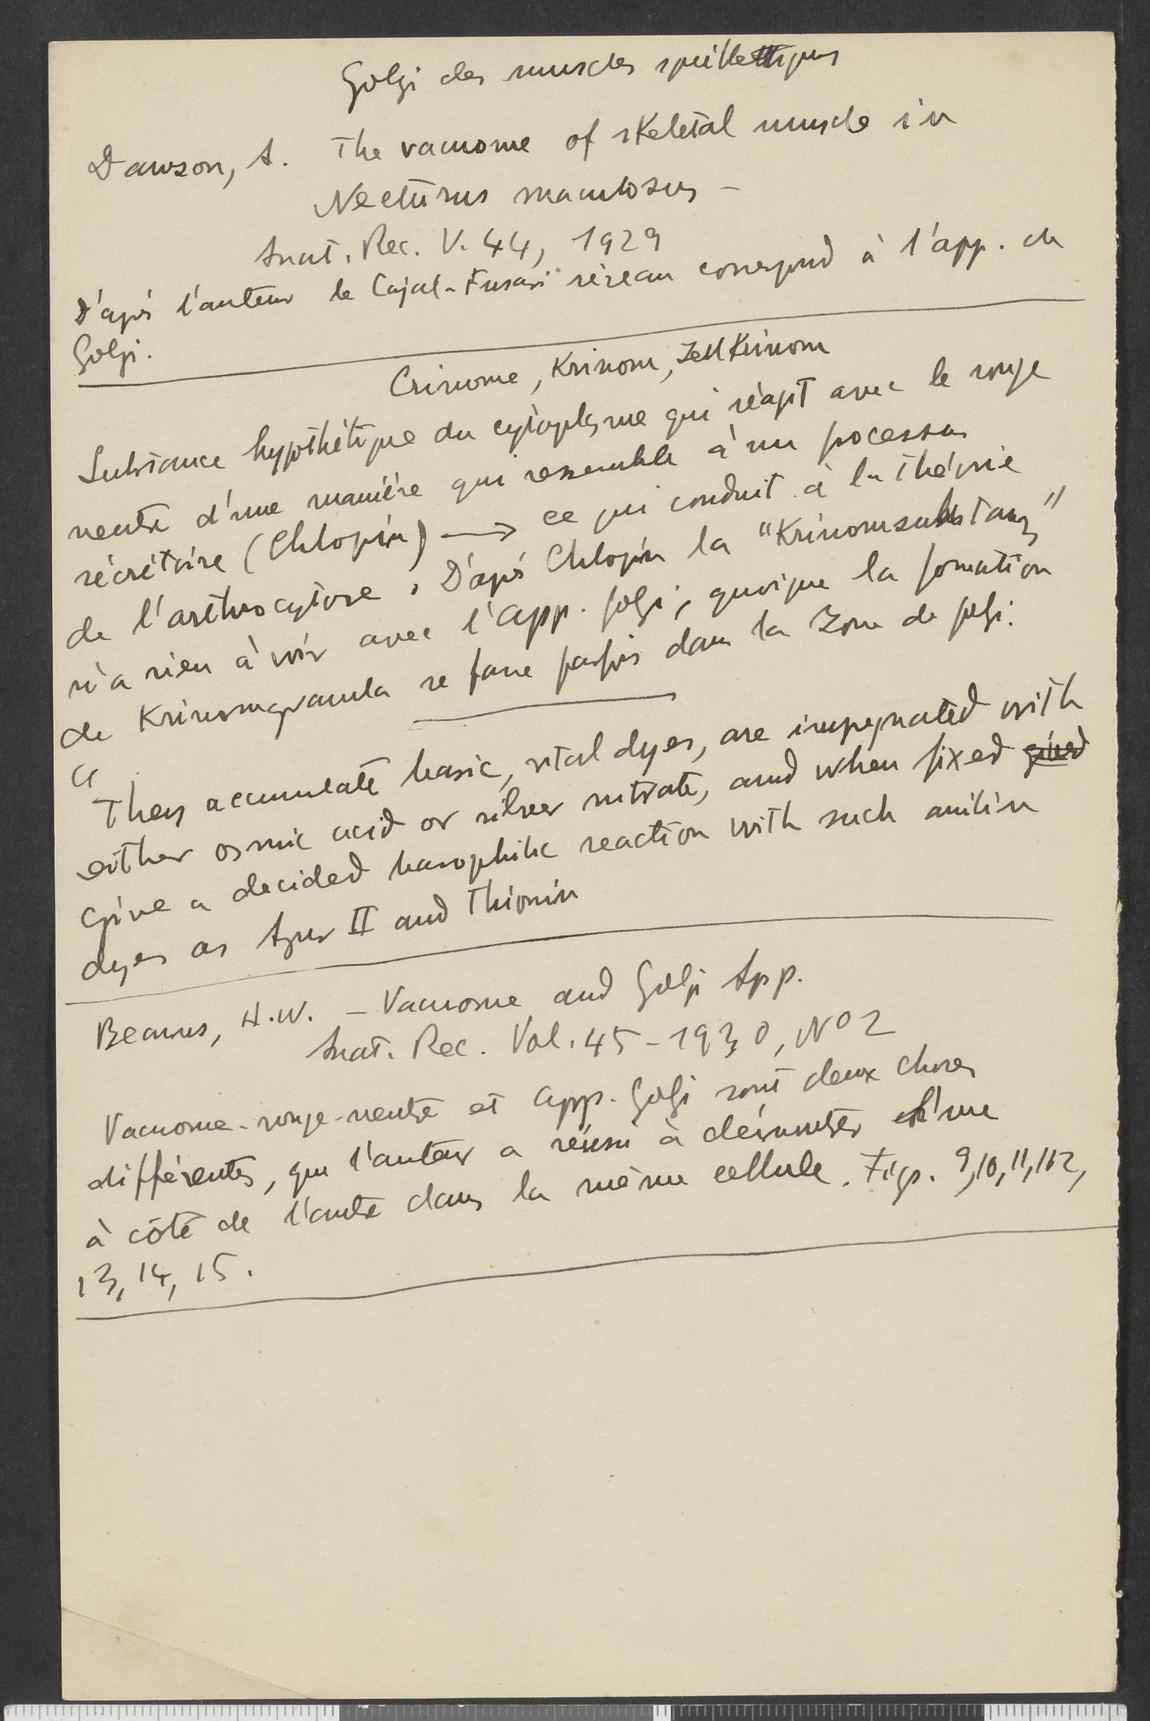 Golgi des muscles squelettiques
Dawson, A. The vacuome of skeletal muscle in
Necturus maculosus –
Anat. Rec. V. 44, 1929
D'après l'auteur le Cajal-Fusari réseau correspond à l'app. de
Golgi.
Crinome, Krinom, Zellkrinom
Substance hypothétique du cytoplasme qui réagit avec le rouge
neutre d'une manière qui ressemble à un processus
sécrétoire (Chlopin) → ce qui conduit à la théorie
de l'arthrocytose. D'après Chlopin la "Krinomsubstanz"
n'a rien à voir avec l'app. Golgi, quoique la formation
de Krinomgranula se fasse parfois dans la Zone de Golgi.
"They accumulate basic, vital dyes, are impregnated with
either osmic acid or silver nitrate, and when fixed
give a decided basophilic reaction with such anilin
dyes as Azur II and Thionin
Beams, H.W. – Vacuome and Golgi App.
Anat. Rec. Vol. 45 – 1930, No 2
Vacuome-rouge-neutre et app. Golgi sont deux choses
différentes, que l'auteur a réussi à démontrer l'une
à côté de l'autre dans la même cellule. Figs. 9, 10, 11, 12,
13, 14, 15.